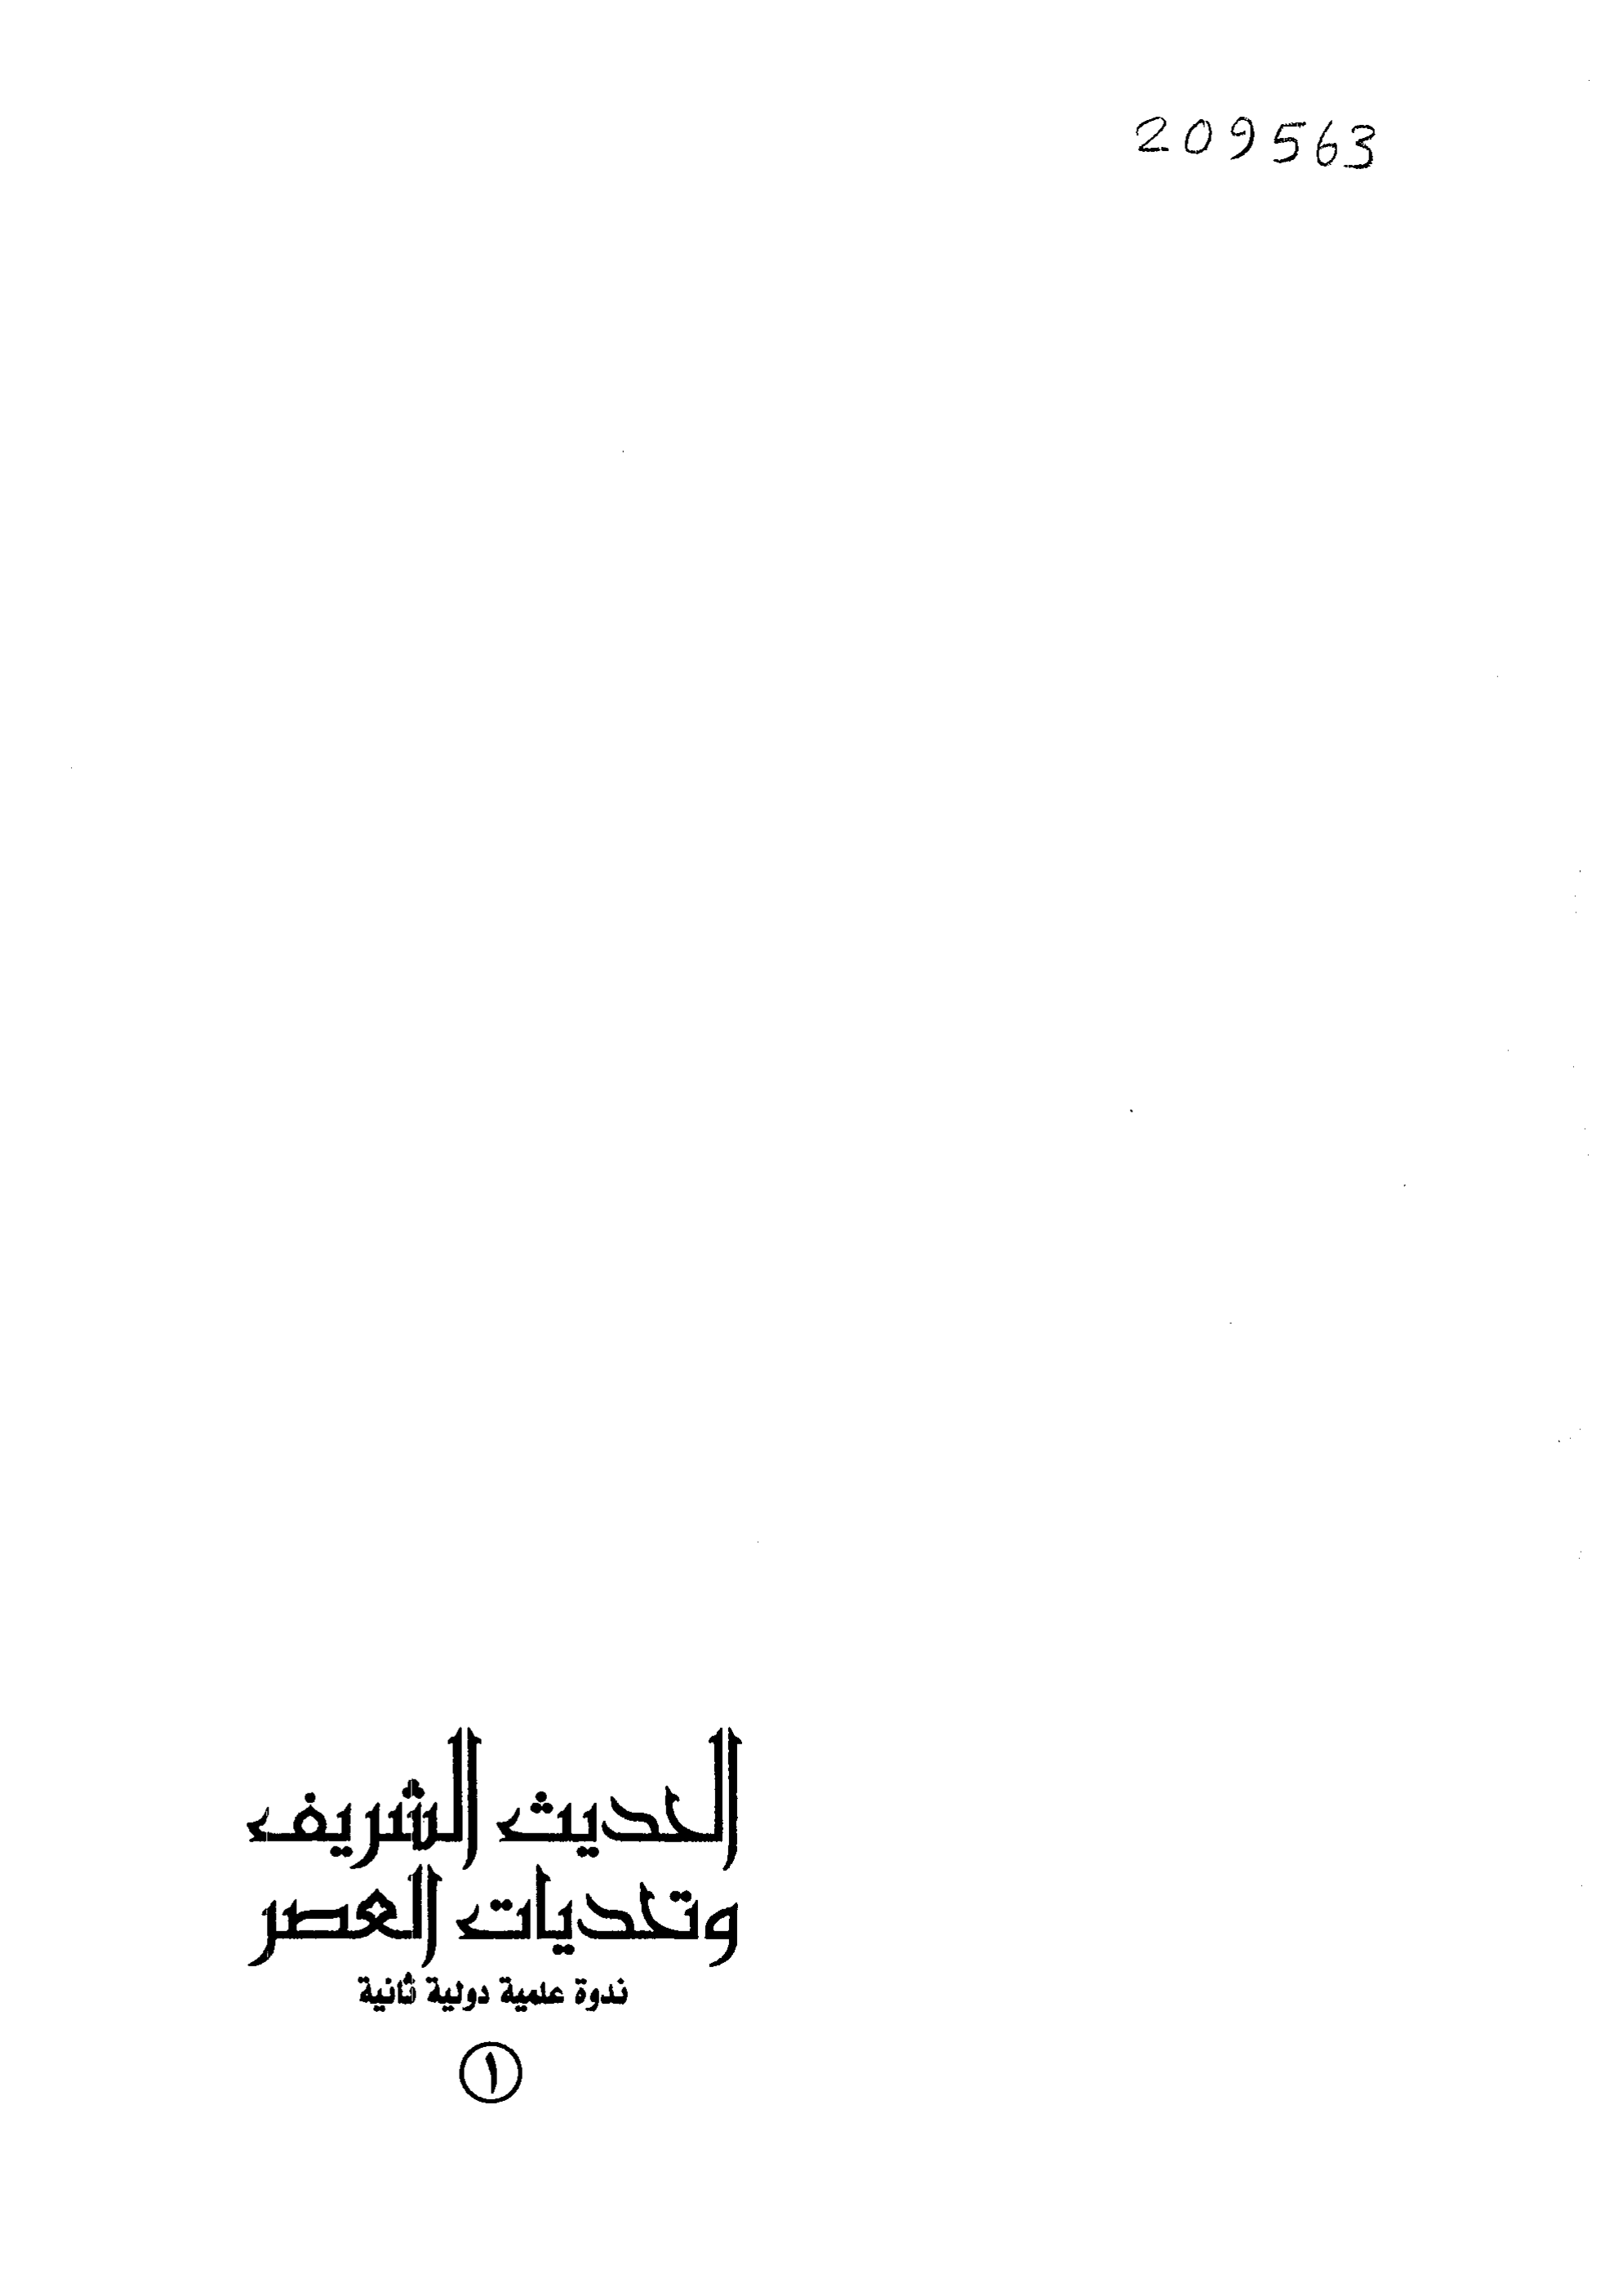 209563
الحديث الشريف
وتحديات العصر
ندوة علمية دولية ثانية
١